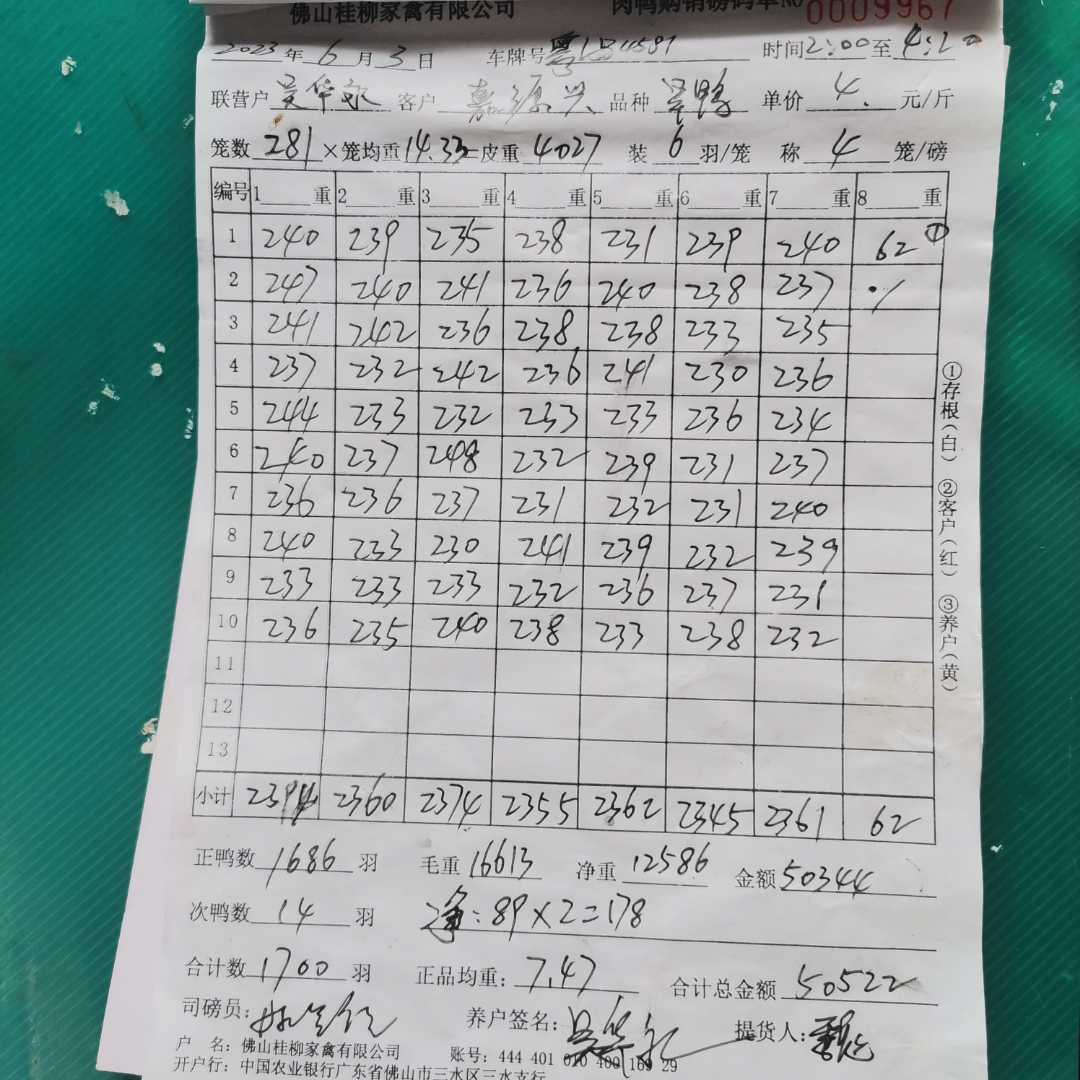 佛山桂柳家禽有限公司 肉鸭购销磅码单 No 0009967
2023年6月3日 车牌号 时间2:00至4:20
联营户 吴华 客户 嘉源兴 品种 鸭 单价 4. 元/斤
笼数 281 ×笼均重 14.33=皮重 4027 装 6 羽/笼 称 4 笼/磅
编号 1 重 2 重 3 重 4 重 5 重 6 重 7 重 8 重
1 240 239 235 238 231 239 240 62 ①
2 247 240 241 236 240 238 237 ·/
3 241 242 236 238 238 233 235
4 237 232 242 236 241 230 236
5 244 233 232 233 233 236 234
6 240 237 248 232 239 231 237
7 236 236 237 231 232 231 240
8 240 233 230 241 239 232 239
9 233 233 233 232 236 237 231
10 236 235 240 238 233 238 232
11
12
13
小计 2394 2360 2374 2355 2362 2345 2361 62
①存根(白) ②客户(红) ③养户(黄)
正鸭数 1686 羽 毛重 16613 净重 12586 金额 50344
次鸭数 14 羽 净:89×2=178
合计数 1700 羽 正品均重: 7.47 合计总金额 50522
司磅员: 养户签名: 吴华 提货人:
户 名:佛山桂柳家禽有限公司 账号:444 401 010 400 169 29
开户行:中国农业银行广东省佛山市三水区三水支行